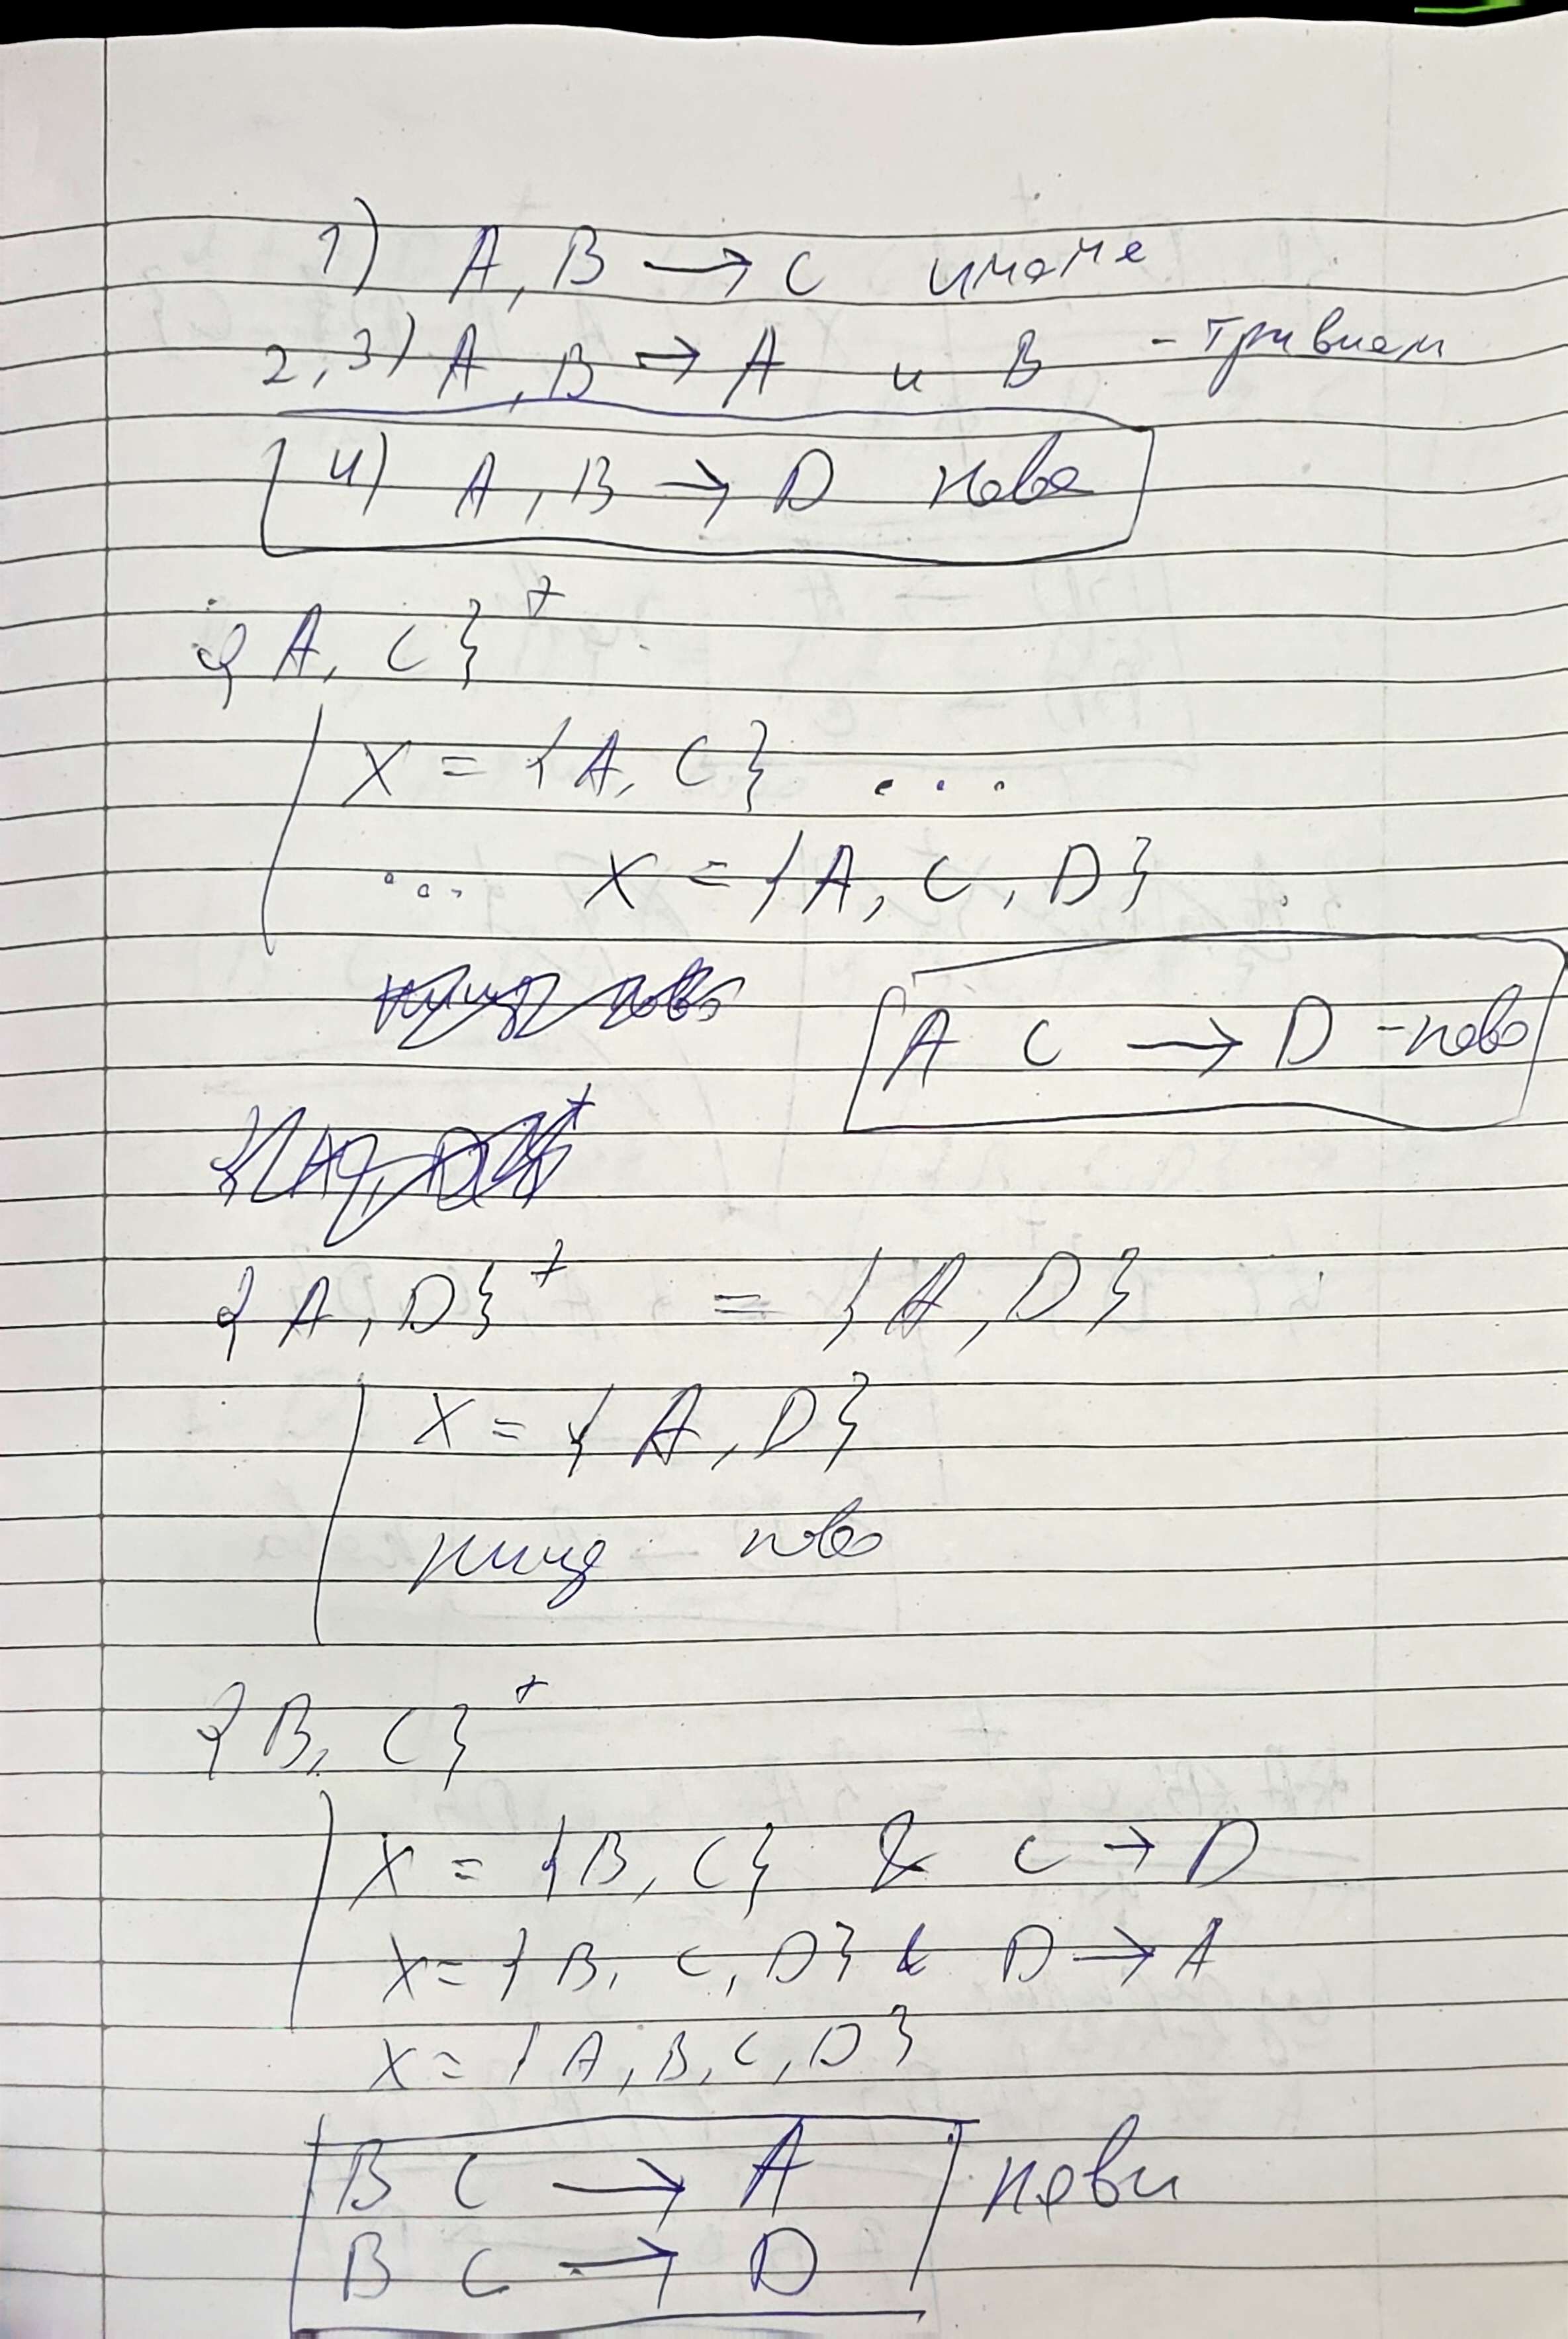 1) A, B → C имаме
2,3) A, B → A и B - тривиал
4) A, B → D нова
{A, C}⁺
X = {A, C} ...
... X = {A, C, D}
A C → D - ново
{A, D}⁺ = {A, D}
X = {A, D}
нищо ново
{B, C}⁺
X = {B, C} & C → D
X = {B, C, D} & D → A
X = {A, B, C, D}
B C → A нови
B C → D